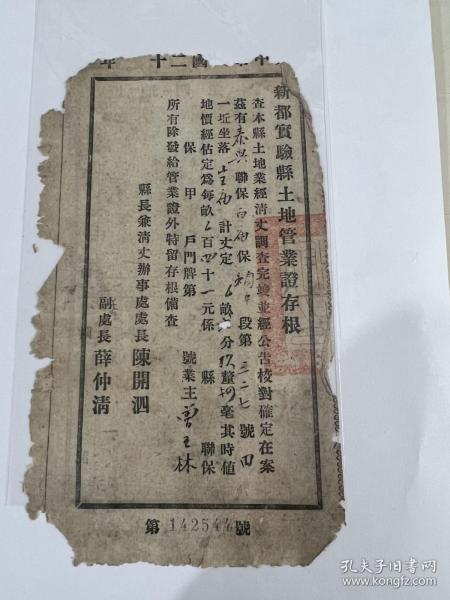 國二十
新都實驗縣土地管業證存根
查本縣土地業經清丈調查完竣並經公告校對確定在案
茲有泰興聯保 保 段第三二七號田
一坵坐落 計丈定 畝 分 釐 毫其時值
地價經估定爲每畝 百四十一元係 縣 聯保
保 甲 戶門牌第 號業主曾玉林
所有除發給管業證外特留存根備查
縣長兼清丈辦事處處長陳開泗
副處長薛仲清
第142544號
孔夫子旧书网
www.kongfz.com